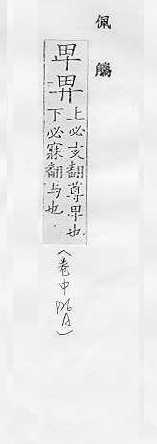 佩觿
卑畀
上必支翻尊卑也
下必寐翻与也
(卷中 A)